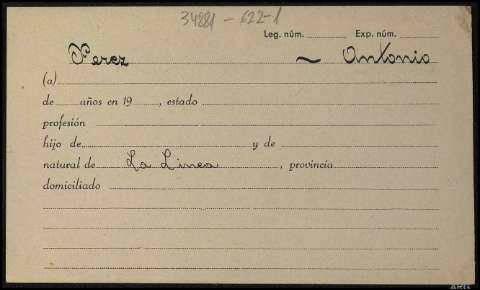 34881-622-1
Leg. núm. Exp. núm.
Perez ~ Antonio
(a)
de años en 19 , estado
profesión
hijo de y de
natural de La Linea , provincia
domiciliado